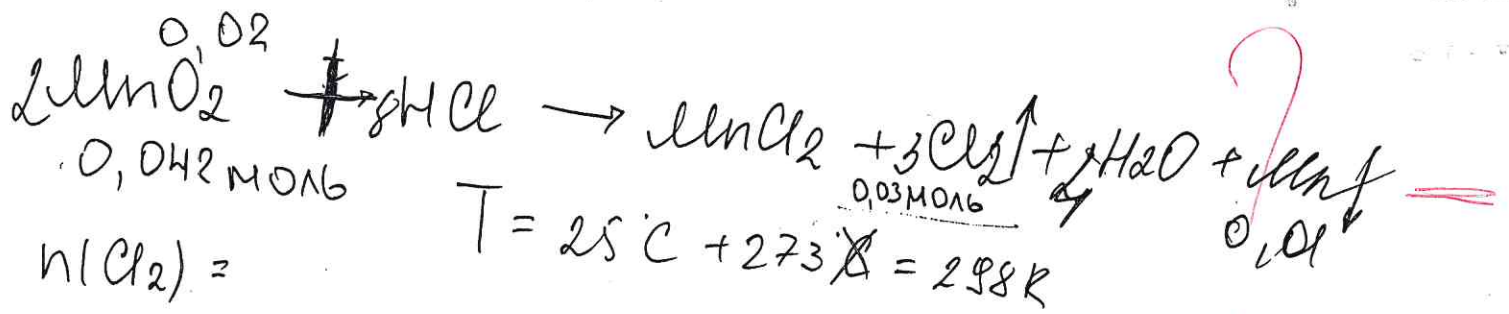 0,02
2MnO2 + 8HCl → MnCl2 + 3Cl2↑ + 4H2O + Mn↓ ?
0,042 моль 0,03 моль 0,01
T = 25°C + 273 = 298K
n(Cl2) =